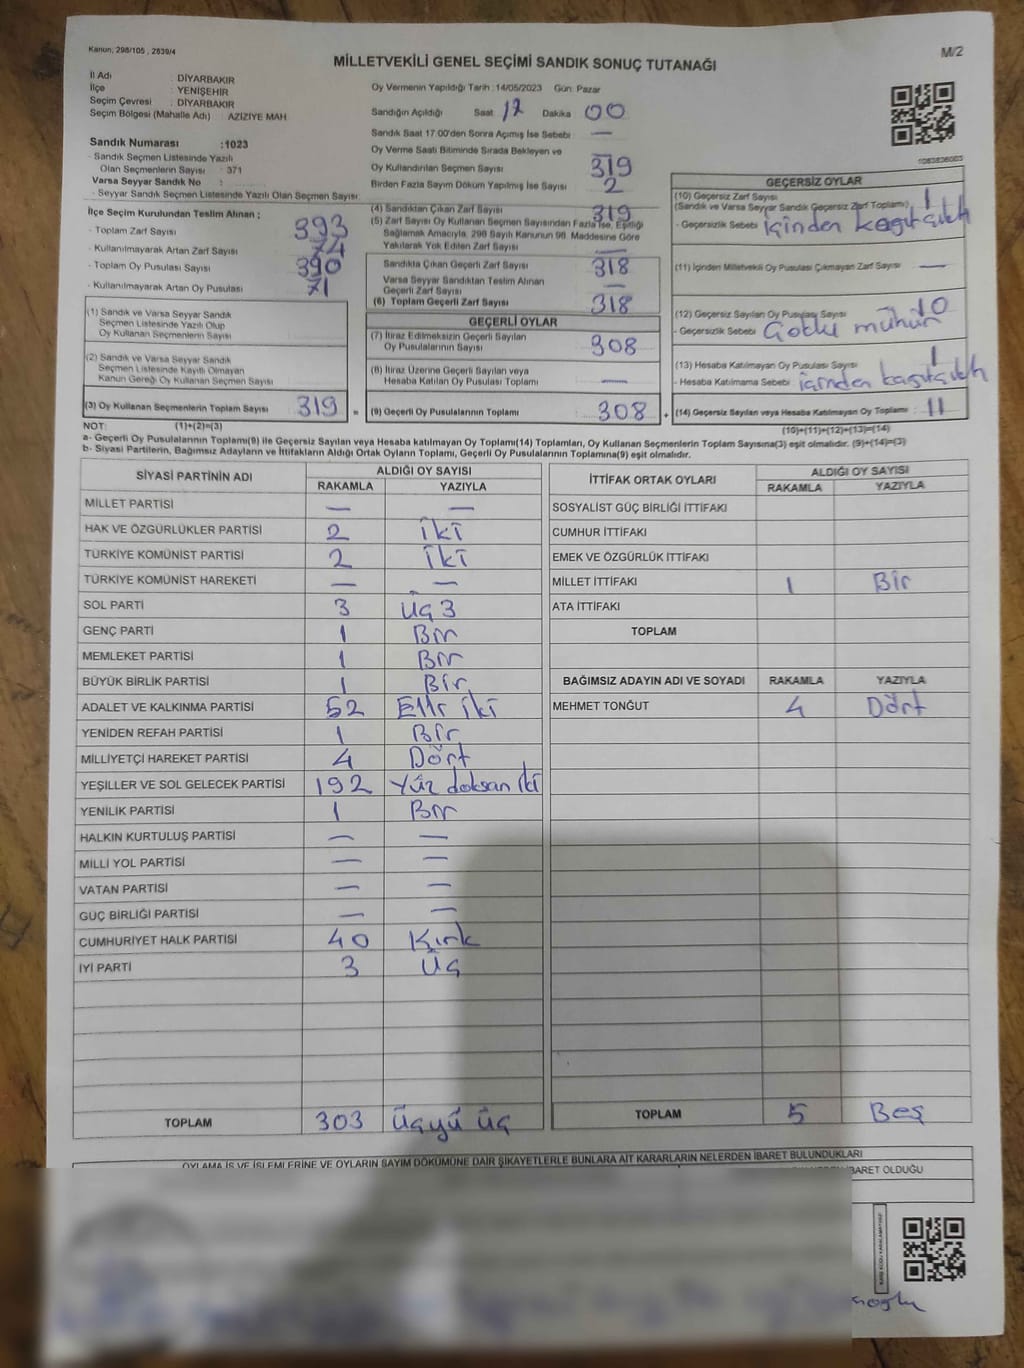 Kanun; 298/105 , 2839/4
M/2
MİLLETVEKİLİ GENEL SEÇİMİ SANDIK SONUÇ TUTANAĞI
İl Adı : DİYARBAKIR
İlçe : YENİŞEHİR
Seçim Çevresi : DİYARBAKIR
Seçim Bölgesi (Mahalle Adı) : AZİZİYE MAH
Sandık Numarası :1023
- Sandık Seçmen Listesinde Yazılı
Olan Seçmenlerin Sayısı : 371
Varsa Seyyar Sandık No :
- Seyyar Sandık Seçmen Listesinde Yazılı Olan Seçmen Sayısı
İlçe Seçim Kurulundan Teslim Alınan ;
- Toplam Zarf Sayısı 393
- Kullanılmayarak Artan Zarf Sayısı 74
- Toplam Oy Pusulası Sayısı 390
- Kullanılmayarak Artan Oy Pusulası 71
(1) Sandık ve Varsa Seyyar Sandık
Seçmen Listesinde Yazılı Olup
Oy Kullanan Seçmenlerin Sayısı
(2) Sandık ve Varsa Seyyar Sandık
Seçmen Listesinde Kayıtlı Olmayan
Kanun Gereği Oy Kullanan Seçmen Sayısı
(3) Oy Kullanan Seçmenlerin Toplam Sayısı 319 =
Oy Vermenin Yapıldığı Tarih : 14/05/2023 Gün: Pazar
Sandığın Açıldığı Saat 17 Dakika 00
Sandık Saat 17.00'den Sonra Açılmış İse Sebebi : —
Oy Verme Saati Bitiminde Sırada Bekleyen ve
Oy Kullandırılan Seçmen Sayısı 319
Birden Fazla Sayım Döküm Yapılmış İse Sayısı 2
(4) Sandıktan Çıkan Zarf Sayısı 319
(5) Zarf Sayısı Oy Kullanan Seçmen Sayısından Fazla İse, Eşitliği
Sağlamak Amacıyla, 298 Sayılı Kanunun 98. Maddesine Göre
Yakılarak Yok Edilen Zarf Sayısı —
Sandıkta Çıkan Geçerli Zarf Sayısı 318
Varsa Seyyar Sandıktan Teslim Alınan
Geçerli Zarf Sayısı —
(6) Toplam Geçerli Zarf Sayısı 318
GEÇERLİ OYLAR
(7) İtiraz Edilmeksizin Geçerli Sayılan
Oy Pusulalarının Sayısı 308
(8) İtiraz Üzerine Geçerli Sayılan veya
Hesaba Katılan Oy Pusulası Toplamı —
(9) Geçerli Oy Pusulalarının Toplamı 308 +
1083836003
GEÇERSİZ OYLAR
(10) Geçersiz Zarf Sayısı 1
(Sandık ve Varsa Seyyar Sandık Geçersiz Zarf Toplamı)
- Geçersizlik Sebebi : içinden kağıt çıktı
(11) İçinden Milletvekili Oy Pusulası Çıkmayan Zarf Sayısı —
(12) Geçersiz Sayılan Oy Pusulası Sayısı 10
- Geçersizlik Sebebi : Çoklu mühür
(13) Hesaba Katılmayan Oy Pusulası Sayısı 1
- Hesaba Katılmama Sebebi : içinden kağıt çıktı
(14) Geçersiz Sayılan veya Hesaba Katılmayan Oy Toplamı : 11
NOT: (1)+(2)=(3)
(10)+(11)+(12)+(13)=(14)
a- Geçerli Oy Pusulalarının Toplamı(9) ile Geçersiz Sayılan veya Hesaba katılmayan Oy Toplamı(14) Toplamları, Oy Kullanan Seçmenlerin Toplam Sayısına(3) eşit olmalıdır. (9)+(14)=(3)
b- Siyasi Partilerin, Bağımsız Adayların ve İttifakların Aldığı Ortak Oyların Toplamı, Geçerli Oy Pusulalarının Toplamına(9) eşit olmalıdır.
SİYASİ PARTİNİN ADI ALDIĞI OY SAYISI
RAKAMLA YAZIYLA
MİLLET PARTİSİ — —
HAK VE ÖZGÜRLÜKLER PARTİSİ 2 İki
TÜRKİYE KOMÜNİST PARTİSİ 2 İki
TÜRKİYE KOMÜNİST HAREKETİ — —
SOL PARTİ 3 Üç 3
GENÇ PARTİ 1 Bir
MEMLEKET PARTİSİ 1 Bir
BÜYÜK BİRLİK PARTİSİ 1 Bir
ADALET VE KALKINMA PARTİSİ 52 Elli iki
YENİDEN REFAH PARTİSİ 1 Bir
MİLLİYETÇİ HAREKET PARTİSİ 4 Dört
YEŞİLLER VE SOL GELECEK PARTİSİ 192 Yüz doksan iki
YENİLİK PARTİSİ 1 Bir
HALKIN KURTULUŞ PARTİSİ — —
MİLLİ YOL PARTİSİ — —
VATAN PARTİSİ — —
GÜÇ BİRLİĞİ PARTİSİ — —
CUMHURİYET HALK PARTİSİ 40 Kırk
İYİ PARTİ 3 Üç
TOPLAM 303 Üçyü üç
İTTİFAK ORTAK OYLARI ALDIĞI OY SAYISI
RAKAMLA YAZIYLA
SOSYALİST GÜÇ BİRLİĞİ İTTİFAKI
CUMHUR İTTİFAKI
EMEK VE ÖZGÜRLÜK İTTİFAKI
MİLLET İTTİFAKI 1 Bir
ATA İTTİFAKI
TOPLAM
BAĞIMSIZ ADAYIN ADI VE SOYADI RAKAMLA YAZIYLA
MEHMET TONĞUT 4 Dört
TOPLAM 5 Beş
OYLAMA İŞ VE İŞLEMLERİNE VE OYLARIN SAYIM DÖKÜMÜNE DAİR ŞİKAYETLERLE BUNLARA AİT KARARLARIN NELERDEN İBARET BULUNDUKLARI
İBARET OLDUĞU